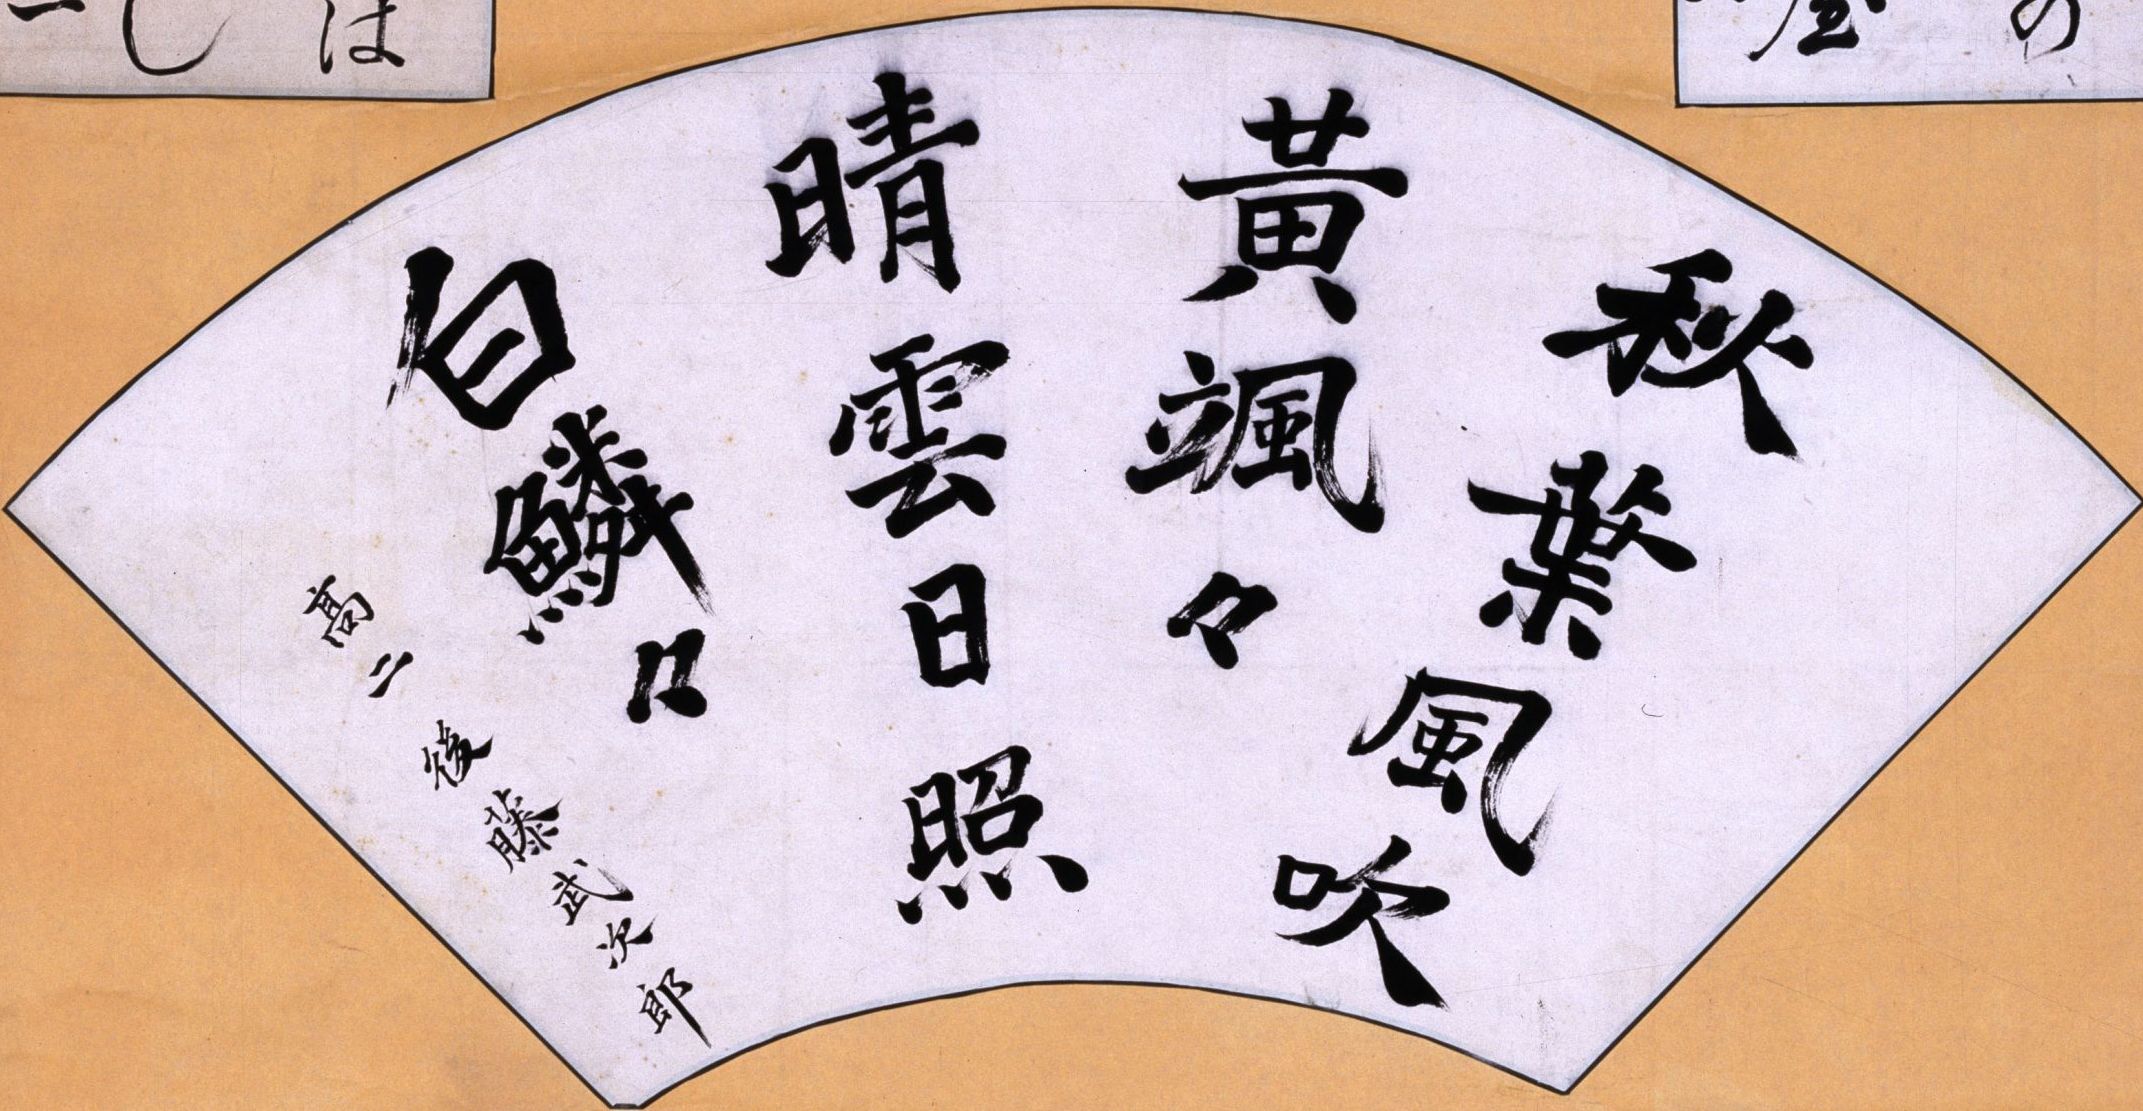 の
屋
秋葉風吹
黄颯々
晴雲日照
白鱗々
高二 後藤武次郎
は
し